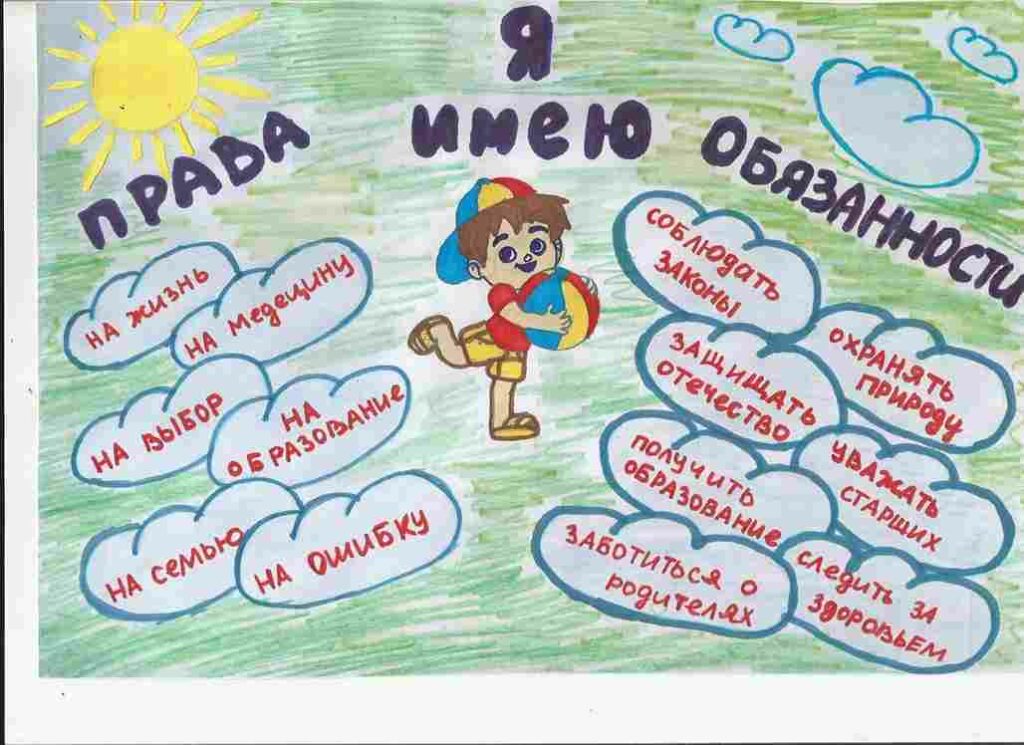 Я
ИМЕЮ
ПРАВА
НА ЖИЗНЬ
НА МЕДЕЦИНУ
НА ВЫБОР
НА
ОБРАЗОВАНИЕ
НА СЕМЬЮ
НА ОШИБКУ
ОБЯЗАННОСТИ
СОБЛЮДАТЬ
ЗАКОНЫ
ОХРАНЯТЬ
ПРИРОДУ
ЗАЩИЩАТЬ
ОТЕЧЕСТВО
УВАЖАТЬ
СТАРШИХ
ПОЛУЧИТЬ
ОБРАЗОВАНИЕ
ЗАБОТИТЬСЯ О
РОДИТЕЛЯХ
СЛЕДИТЬ ЗА
ЗДОРОВЬЕМ